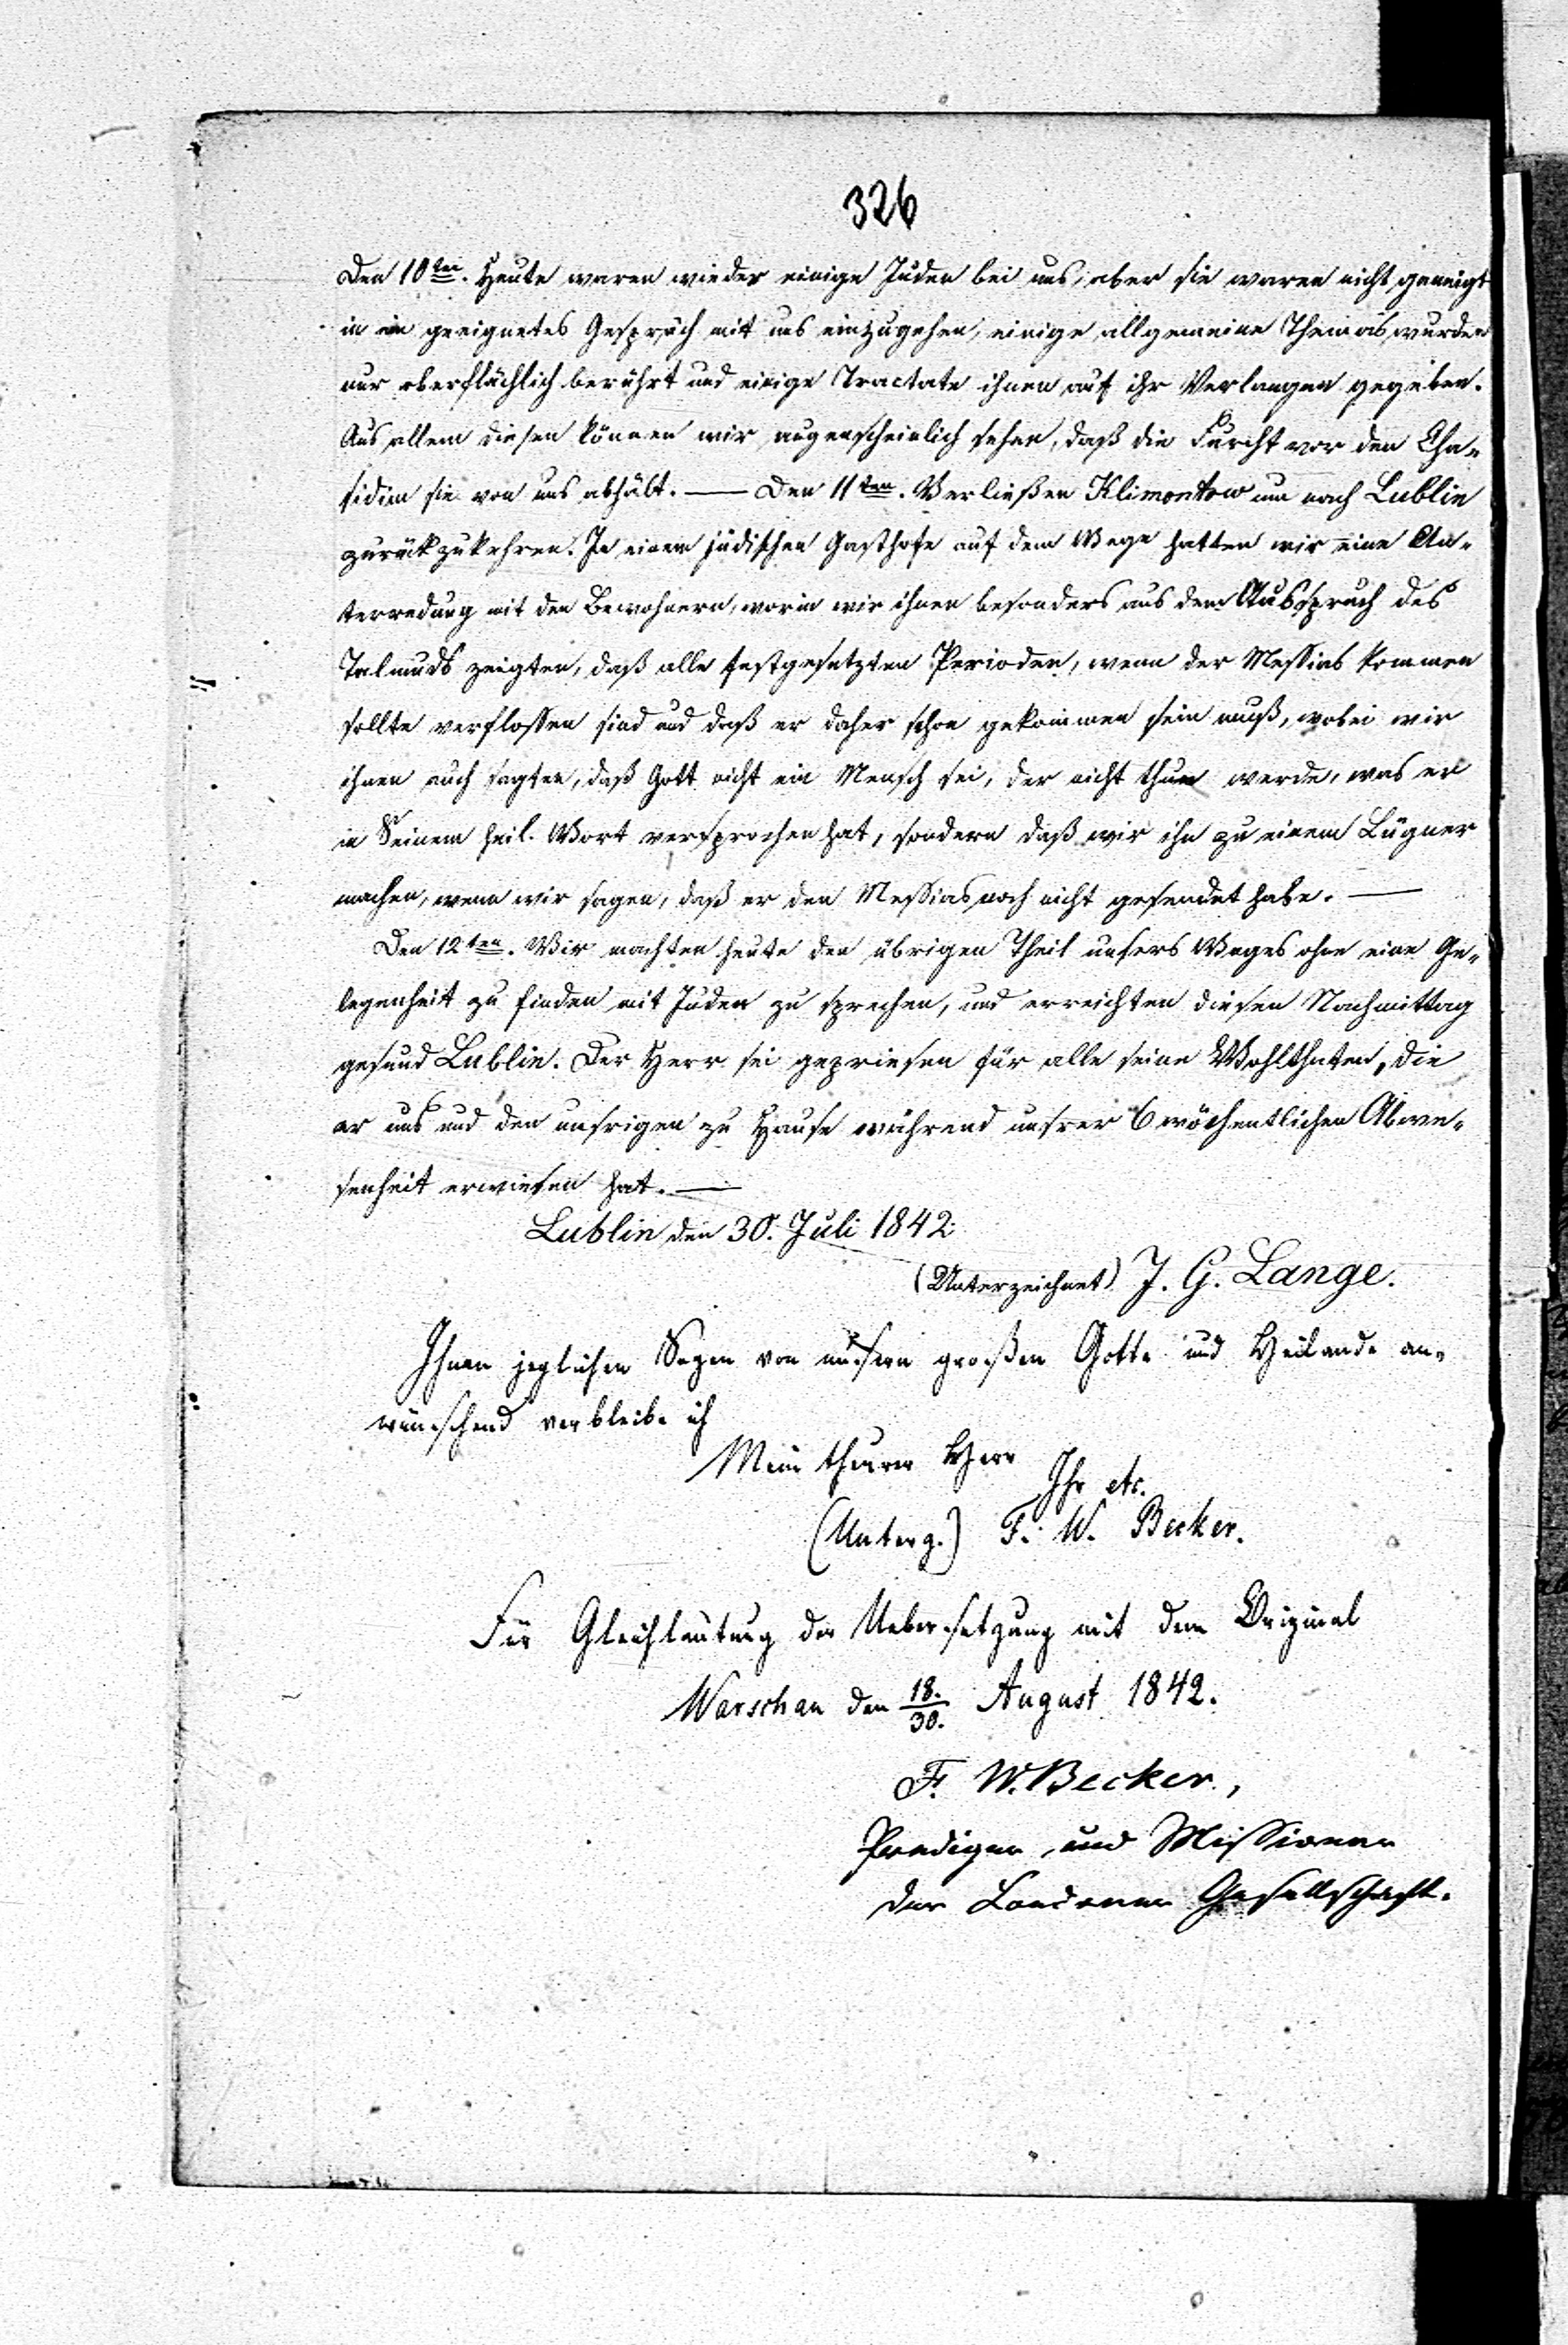 326
Den 10ten. Heute waren wieder einige Juden bei uns, aber sie waren nicht geneigt
in ein geeignetes Gespräch mit uns einzugehen, einige allgemeine Themas wurden
nur oberflächlich berührt und einige Tractate ihnen auf ihr Verlangen gegeben.
Aus allem diesen können wir augenscheinlich sehen, daß die Furcht vor den Cha-
sidim sie von uns abhält. — Den 11ten. Verließen Klimontow um nach Lublin
zurückzukehren. In einem jüdischen Gasthofe auf dem Wege hatten wir eine Un-
terredung mit den Bewohnern, worin wir ihnen besonders aus dem Ausspruch des
Talmuds zeigten, daß alle festgesetzten Perioden, wenn der Messias kommen
sollte verflossen sind und daß er daher schon gekommen sein muß, wobei wir
ihnen auch sagten, daß Gott nicht ein Mensch sei, der nicht thun werde, was er
in Seinem heil. Wort versprochen hat, sondern daß wir ihn zu einem Lügner
machen, wenn wir sagen, daß er den Messias noch nicht gesendet habe. —
Den 12ten. Wir machten heute den übrigen Theil unsers Weges ohne eine Ge-
legenheit zu finden mit Juden zu sprechen, und erreichten diesen Nachmittag
gesund Lublin. Der Herr sei gepriesen für alle seine Wohlthaten, die
er uns und den unsrigen zu Hause während unsrer 6 wöchentlichen Abwe-
senheit erwiesen hat. —
Lublin den 30. Juli 1842
(Unterzeichnet) J. G. Lange.
Ihnen jeglichen Segen von unserm großen Gotte und Heilande an-
wünschend verbleibe ich
Mein theurer Herr
Ihr etc.
(Unterz.) F. W. Becker.
Für Gleichlautung der Uebersetzung mit dem Original
Warschau den 18./30. August 1842.
F. W. Becker,
Prediger und Missionar
der Londoner Gesellschaft.